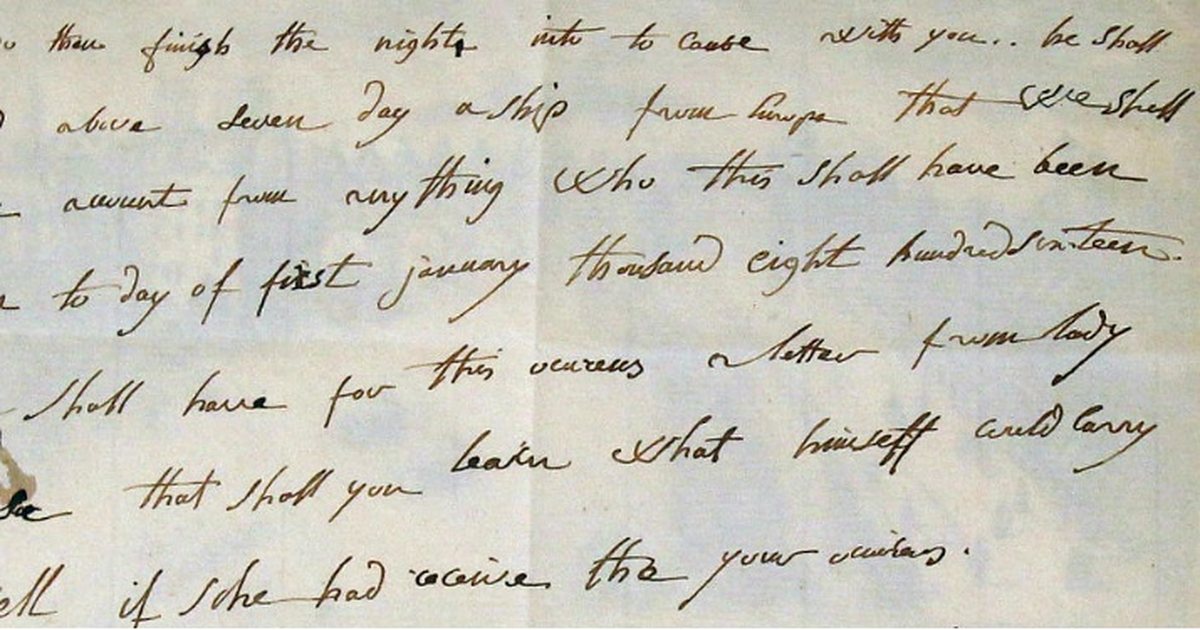 then finish the night, into to cause with you.. he shall
above seven day a ship from Europa that we shall
account from any thing who this shall have been
to day of first january thousand eight hundred sixteen.
shall have for this ocurens a letter from lady
that shall you learn what himself could carry
if sche had receive the your ocurens.